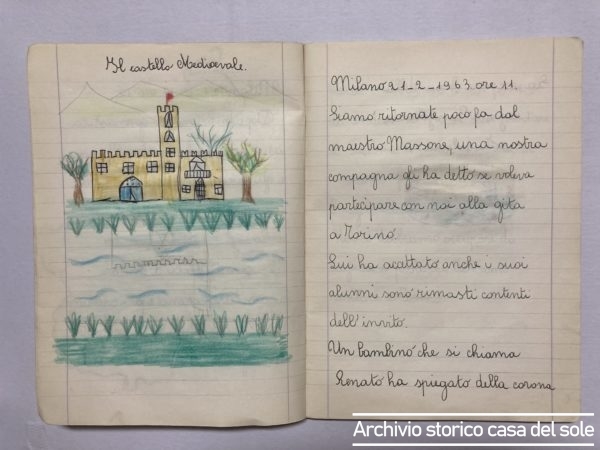 Il castello Medioevale.
Milano 21-2-1963. ore 11.
Siamo ritornate poco fa dal
maestro Massone, una nostra
compagna gli ha detto se voleva
partecipare con noi alla gita
a Torino.
Lui ha accettato anche i suoi
alunni sono rimasti contenti
dell'invito.
Un bambino che si chiama
Renato ha spiegato della corona
Archivio storico casa del sole